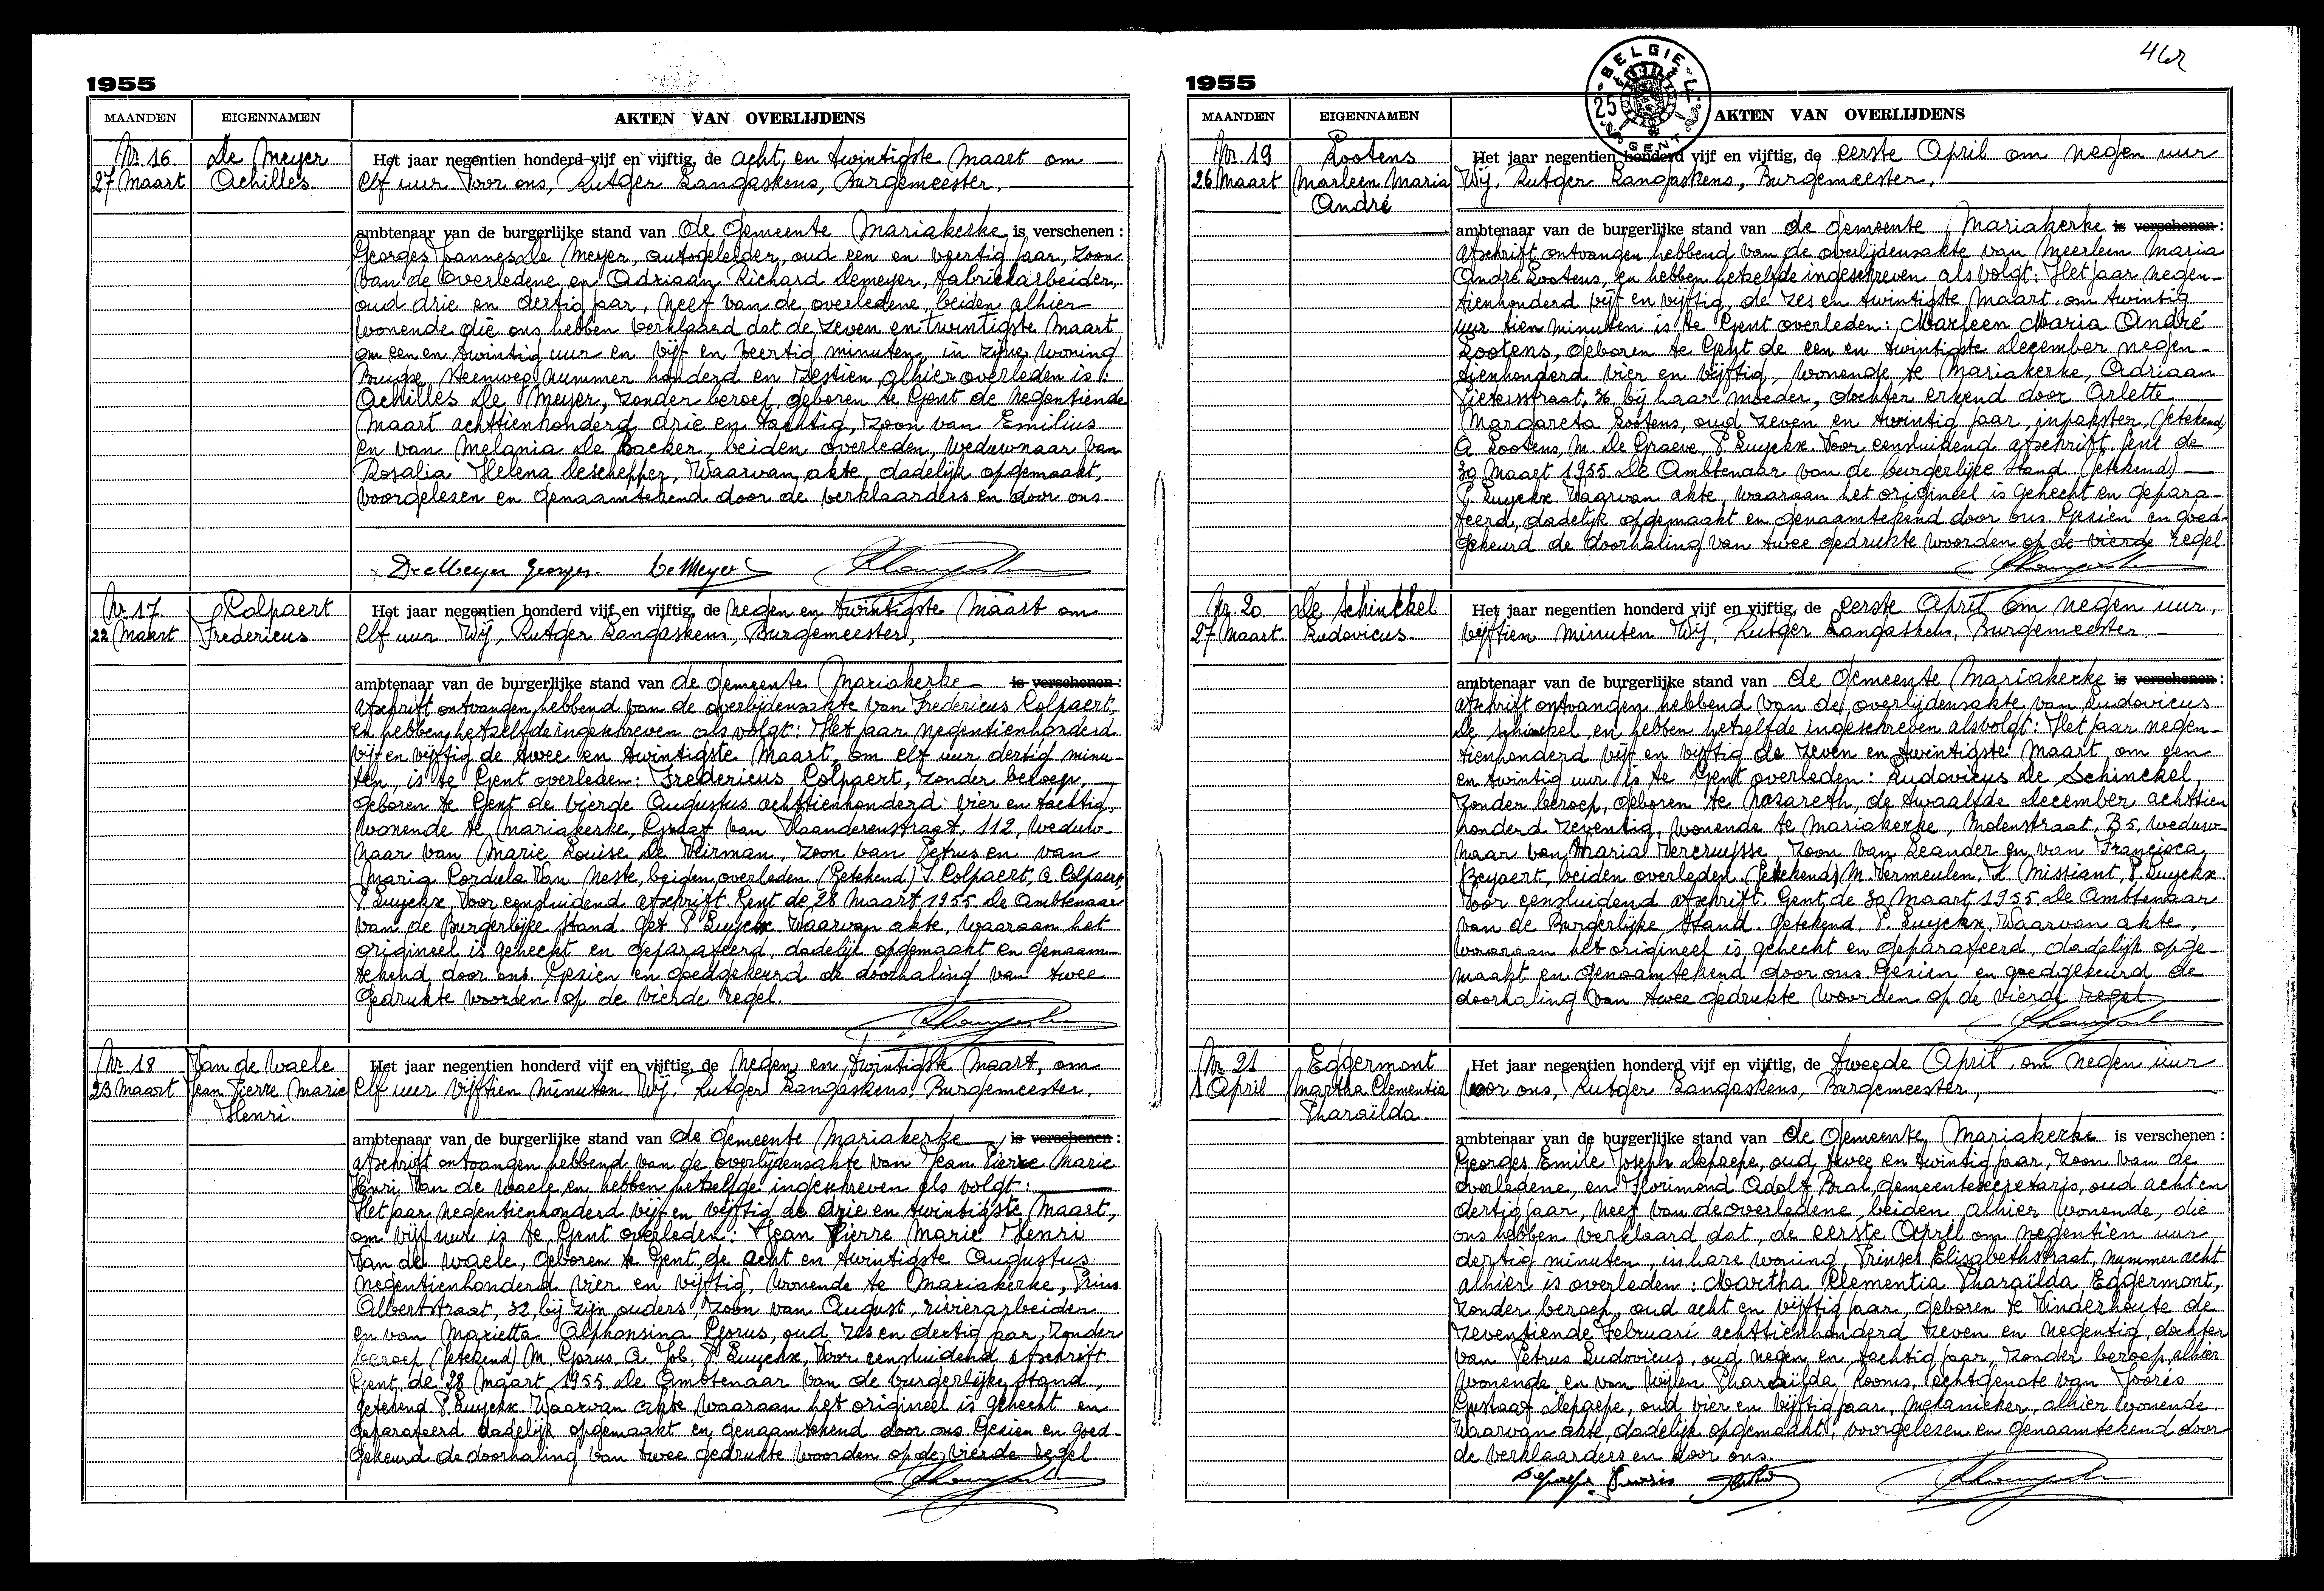 1955
MAANDEN EIGENNAMEN AKTEN VAN OVERLIJDENS
Nr. 16
27 Maart
De Meyer
Achilles
Het jaar negentien honderd vijf en vijftig, de acht en twintigste Maart om
elf uur. Voor ons, Rutger Langaskens, Burgemeester,
ambtenaar van de burgerlijke stand van de Gemeente Mariakerke is verschenen :
Georges Joannes De Meyer, autogeleider, oud een en veertig jaar, zoon
van de overledene en Adriaan Richard Demeyer, fabriekarbeider,
oud drie en dertig jaar, neef van de overledene, beiden alhier
wonende die ons hebben verklaard dat de zeven en twintigste Maart
om een en twintig uur en vijf en veertig minuten, in zijne woning
Brugse steenweg nummer honderd en zestien, alhier overleden is :
Achilles De Meyer, zonder beroep, geboren te Gent de negentiende
Maart achttienhonderd drie en tachtig, zoon van Emilius
en van Melania De Backer, beiden overleden, weduwnaar van
Rosalia Helena Deschepper, Waarvan akte, dadelijk opgemaakt,
voorgelezen en genaamtekend door de verklaarders en door ons.
De Meyer Georges. De Meyer
Nr. 17
22 Maart
Colpaert
Fredericus.
Het jaar negentien honderd vijf en vijftig, de negen en twintigste Maart om
elf uur. Wij, Rutger Langaskens, Burgemeester,
ambtenaar van de burgerlijke stand van de Gemeente Mariakerke is verschenen :
Afschrift ontvangen hebbend van de overlijdensakte van Fredericus Colpaert,
en hebben hetzelfde ingeschreven als volgt: Het jaar negentienhonderd
vijf en vijftig de twee en twintigste Maart, om elf uur dertig minu-
ten, is te Gent overleden: Fredericus Colpaert, zonder beroep,
geboren te Gent de vierde Augustus achttienhonderd vier en tachtig,
wonende te Mariakerke, Graaf van Vlaanderenstraat, 112, weduw-
naar van Marie Louise De Veirman, zoon van Petrus en van
Maria Cordula Van Neste, beiden overleden (Getekend) J. Colpaert, A. Colpaert,
P. Luyckx, Voor eensluidend afschrift. Gent de 28 Maart 1955 De Ambtenaar
van de Burgerlijke Stand. Get. P. Luyckx. Waarvan akte, waaraan het
origineel is gehecht en geparafeerd, dadelijk opgemaakt en genaam-
tekend door ons. Gezien en goedgekeurd de doorhaling van twee
gedrukte woorden op de vierde regel.
Nr. 18
23 Maart
Van de Waele
Jean Pierre Marie
Henri.
Het jaar negentien honderd vijf en vijftig, de negen en twintigste Maart, om
elf uur vijftien minuten. Wij, Rutger Langaskens, Burgemeester,
ambtenaar van de burgerlijke stand van de Gemeente Mariakerke is verschenen :
Afschrift ontvangen hebbend van de overlijdensakte van Jean Pierre Marie
Henri Van de Waele en hebben hetzelfde ingeschreven als volgt:
Het jaar negentienhonderd vijf en vijftig de drie en twintigste Maart,
om vijf uur is te Gent overleden: Jean Pierre Marie Henri
Van de Waele, geboren te Gent de acht en twintigste Augustus
negentienhonderd vier en vijftig, wonende te Mariakerke, Prins
Albertstraat, 32, bij zijn ouders, zoon van August, rivierarbeider
en van Marietta Alphonsina Gorus, oud zes en dertig jaar, zonder
beroep (Getekend) M. Gorus, A. Job, P. Luyckx, Voor eensluidend afschrift
Gent, de 28 Maart 1955 De Ambtenaar van de burgerlijke stand,
getekend P. Luyckx. Waarvan akte waaraan het origineel is gehecht en
geparafeerd dadelijk opgemaakt en genaamtekend door ons. Gezien en goed-
gekeurd de doorhaling van twee gedrukte woorden op de vierde regel.
BELGIE
25
GENT
1955
MAANDEN EIGENNAMEN AKTEN VAN OVERLIJDENS
Nr. 19
26 Maart
Lootens
Marleen Maria
André
Het jaar negentien honderd vijf en vijftig, de eerste April om negen uur
Wij, Rutger Langaskens, Burgemeester,
ambtenaar van de burgerlijke stand van de Gemeente Mariakerke is verschenen :
Afschrift ontvangen hebbend van de overlijdensakte van Meerlein Maria
André Lootens, en hebben hetzelfde ingeschreven als volgt: Het jaar negen-
tienhonderd vijf en vijftig, de zes en twintigste Maart om twintig
uur tien minuten is te Gent overleden: Marleen Maria André
Lootens, geboren te Gent de een en twintigste December negen-
tienhonderd vier en vijftig, wonende te Mariakerke, Adriaan
Lietersstraat, 36, bij haar moeder, dochter erkend door Arlette
Margareta Lootens, oud zeven en twintig jaar, inpakster, (Getekend)
A. Lootens, M. De Graeve, P. Luyckx. Voor eensluidend afschrift. Gent de
30 Maart 1955 De Ambtenaar van de burgerlijke stand (getekend)
P. Luyckx. Waarvan akte, waaraan het origineel is gehecht en gepara-
feerd, dadelijk opgemaakt en genaamtekend door ons. Gezien en goed-
gekeurd de doorhaling van twee gedrukte woorden op de vierde regel.
Nr. 20
27 Maart.
De Schinckel
Ludovicus.
Het jaar negentien honderd vijf en vijftig, de eerste April om negen uur,
vijftien minuten Wij, Rutger Langaskens, Burgemeester,
ambtenaar van de burgerlijke stand van de Gemeente Mariakerke is verschenen :
Afschrift ontvangen hebbend van de overlijdensakte van Ludovicus
De Schinckel en hebben hetzelfde ingeschreven als volgt: Het jaar negen-
tienhonderd vijf en vijftig de zeven en twintigste Maart om een
en twintig uur is te Gent overleden: Ludovicus De Schinckel,
zonder beroep, geboren te Nazareth, de twaalfde December achttien
honderd zeventig, wonende te Mariakerke, Molenstraat, B5, weduw-
naar van Maria Vercruysse, zoon van Leander en van Francisca
Beyaert, beiden overleden. (Getekend) M. Vermeulen, L. Missiant, P. Luyckx
Voor eensluidend afschrift. Gent de 30 Maart 1955 De Ambtenaar
van de Burgerlijke Stand. Getekend, P. Luyckx, Waarvan akte,
waaraan het origineel is gehecht en geparafeerd, dadelijk opge-
maakt en genaamtekend door ons. Gezien en goedgekeurd de
doorhaling van twee gedrukte woorden op de vierde regel
Nr. 21
1 April
Eggermont
Martha Clementia
Pharaïlda.
Het jaar negentien honderd vijf en vijftig, de tweede April, om negen uur
Voor ons, Rutger Langaskens, Burgemeester,
ambtenaar van de burgerlijke stand van de Gemeente Mariakerke is verschenen :
Georges Emile Joseph Depaepe, oud twee en twintig jaar, zoon van de
overledene, en Florimond Adolf Bral, gemeentesecretaris, oud acht en
dertig jaar, neef van de overledene, beiden alhier wonende, die
ons hebben verklaard dat, de eerste April om negentien uur
dertig minuten, in hare woning, Prinses Elisabethstraat, nummer acht
alhier is overleden : Martha Clementia Pharaïlda Eggermont,
zonder beroep, oud acht en vijftig jaar, geboren te Vinderhoute de
zeventiende Februari achttienhonderd zeven en negentig, dochter
van Petrus Ludovicus, oud negen en tachtig jaar, zonder beroep, alhier
wonende, en van wijlen Pharaïlda Rooms, echtgenote van Joores
Gustaaf Depaepe, oud vier en vijftig jaar, mekanieker, alhier wonende.
Waarvan akte, dadelijk opgemaakt, voorgelezen en genaamtekend door
de verklaarders en door ons.